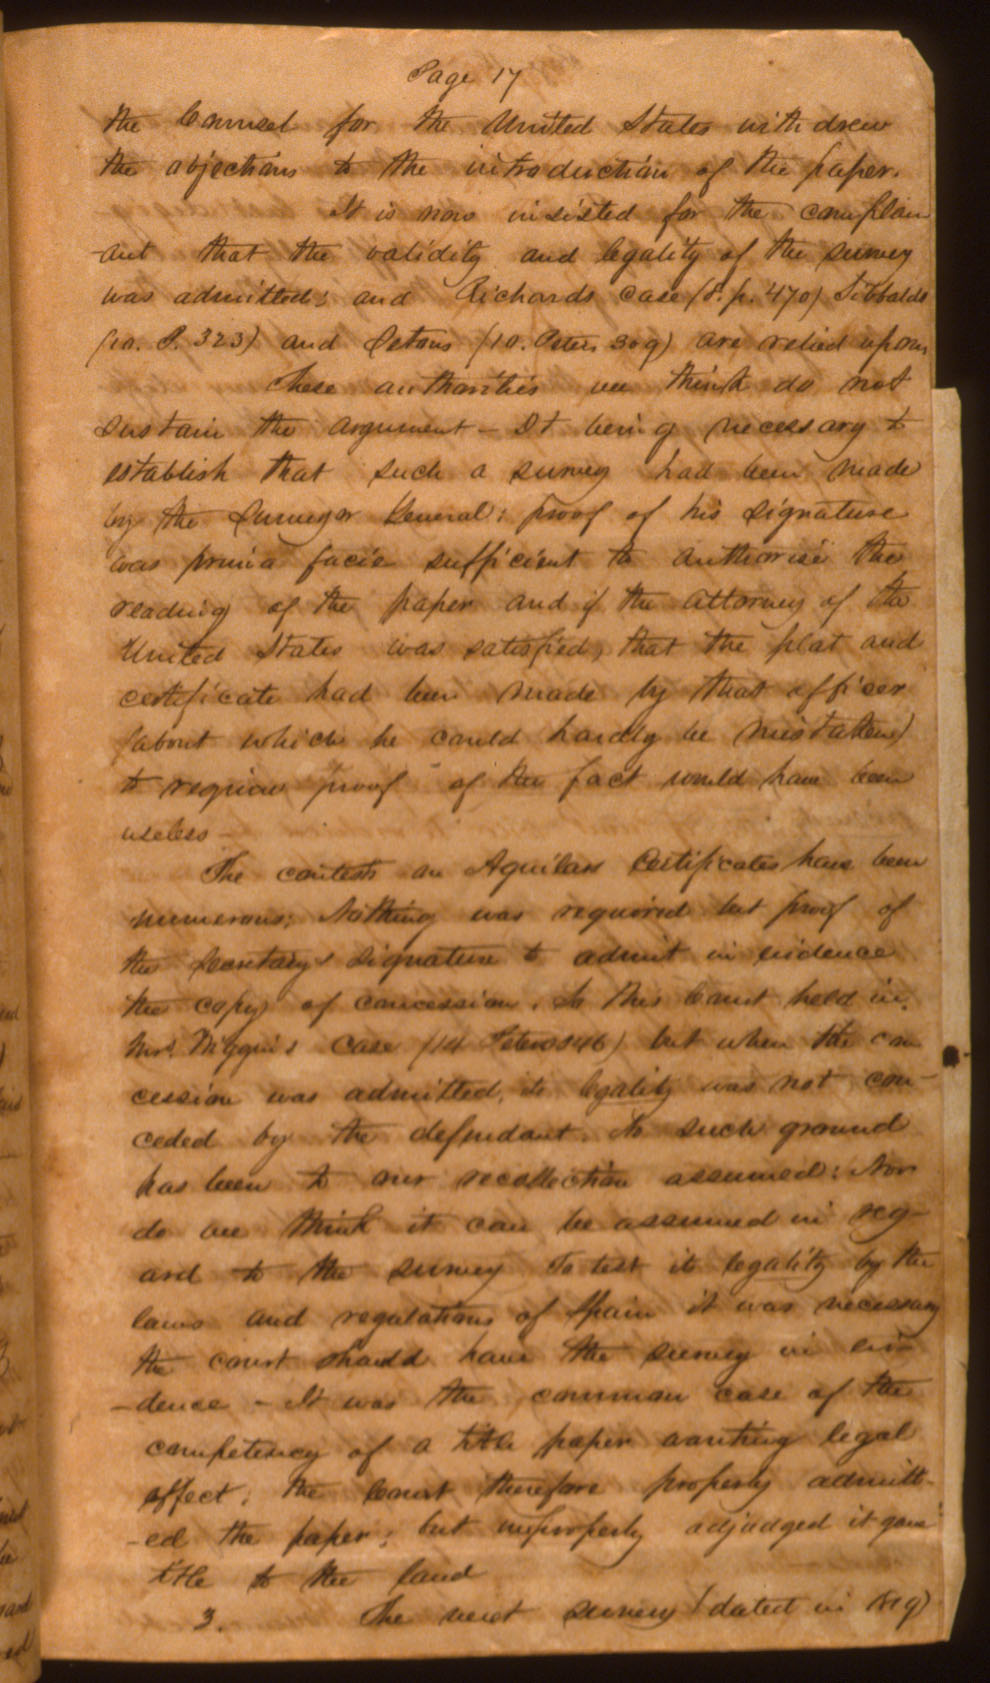 Page 17
the Counsel for the United States withdrew
the objections to the introduction of the paper.
It is now insisted for the complain
-ant that the validity and legality of the survey
was admitted; and Richards case (8. p. 470) Sibbalds
(10. P. 323) and Setons (10. Peters 309) are relied upon
These authorities we think do not
sustain the argument - It being necessary to
establish that such a survey had been made
by the Surveyor General; proof of his signature
was prima facie sufficient to authorise the
reading of the paper and if the attorney of the
United States was satisfied, that the plat and
certificate had been made by that officer
(about which he could hardly be mistaken)
to require proof of the fact would have been
useless -
The contests on Aguilars Certificates have been
numerous; Nothing was required but proof of
the Secretary's signature to admit in evidence
the copy of concession. So this Court held in
Mrs. Wiggins case (14 Peters 346) but when the con
cession was admitted, its legality was not con-
ceded by the defendant. No such ground
has been to our recollection assumed: Nor
do we think it can be assumed in reg-
ard to the survey To test its legality by the
laws and regulations of Spain it was necessary
the court should have the survey in evi-
-dence - It was the common case of the
competency of a title paper wanting legal
effect; the Court therefore properly admitt-
-ed the paper; but improperly adjudged it gave
title to the land
3. The next survey (dated in 1819)